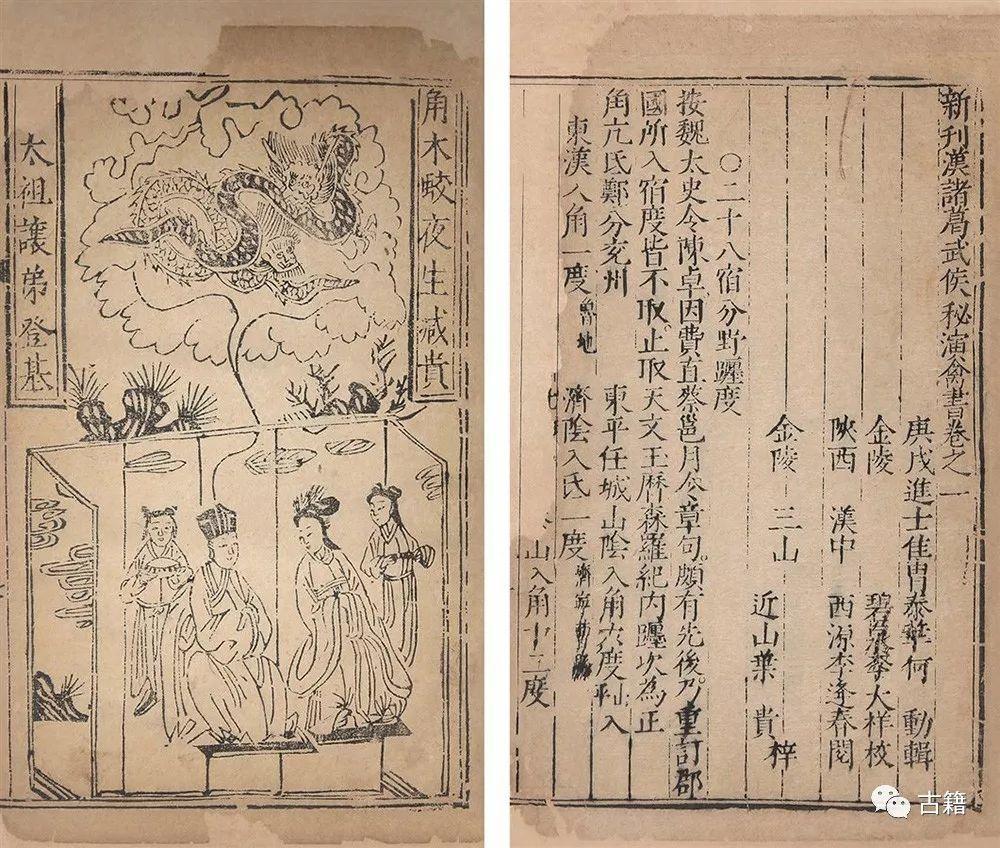 角木蛟夜生减貴
太祖讓弟登基
新刊漢諸葛武侯秘演禽書卷之一
庚戌進士佳胄泰華何 動輯
金陵 碧泉李大祥校
陝西 漢中 西源李逢春閱
金陵 三山 近山葉 貴 梓
〇二十八宿分野躔度
按魏太史令陳卓因費直蔡邕月令章句頗有先後乃重訂郡
國所入宿度皆不取止取天文玉曆森羅紀內躔次為正
角亢氐鄭分兗州 東平任城山陰入角六度
東漢入角一度 魯地 濟陰入氐一度 山入角十二度
古籍